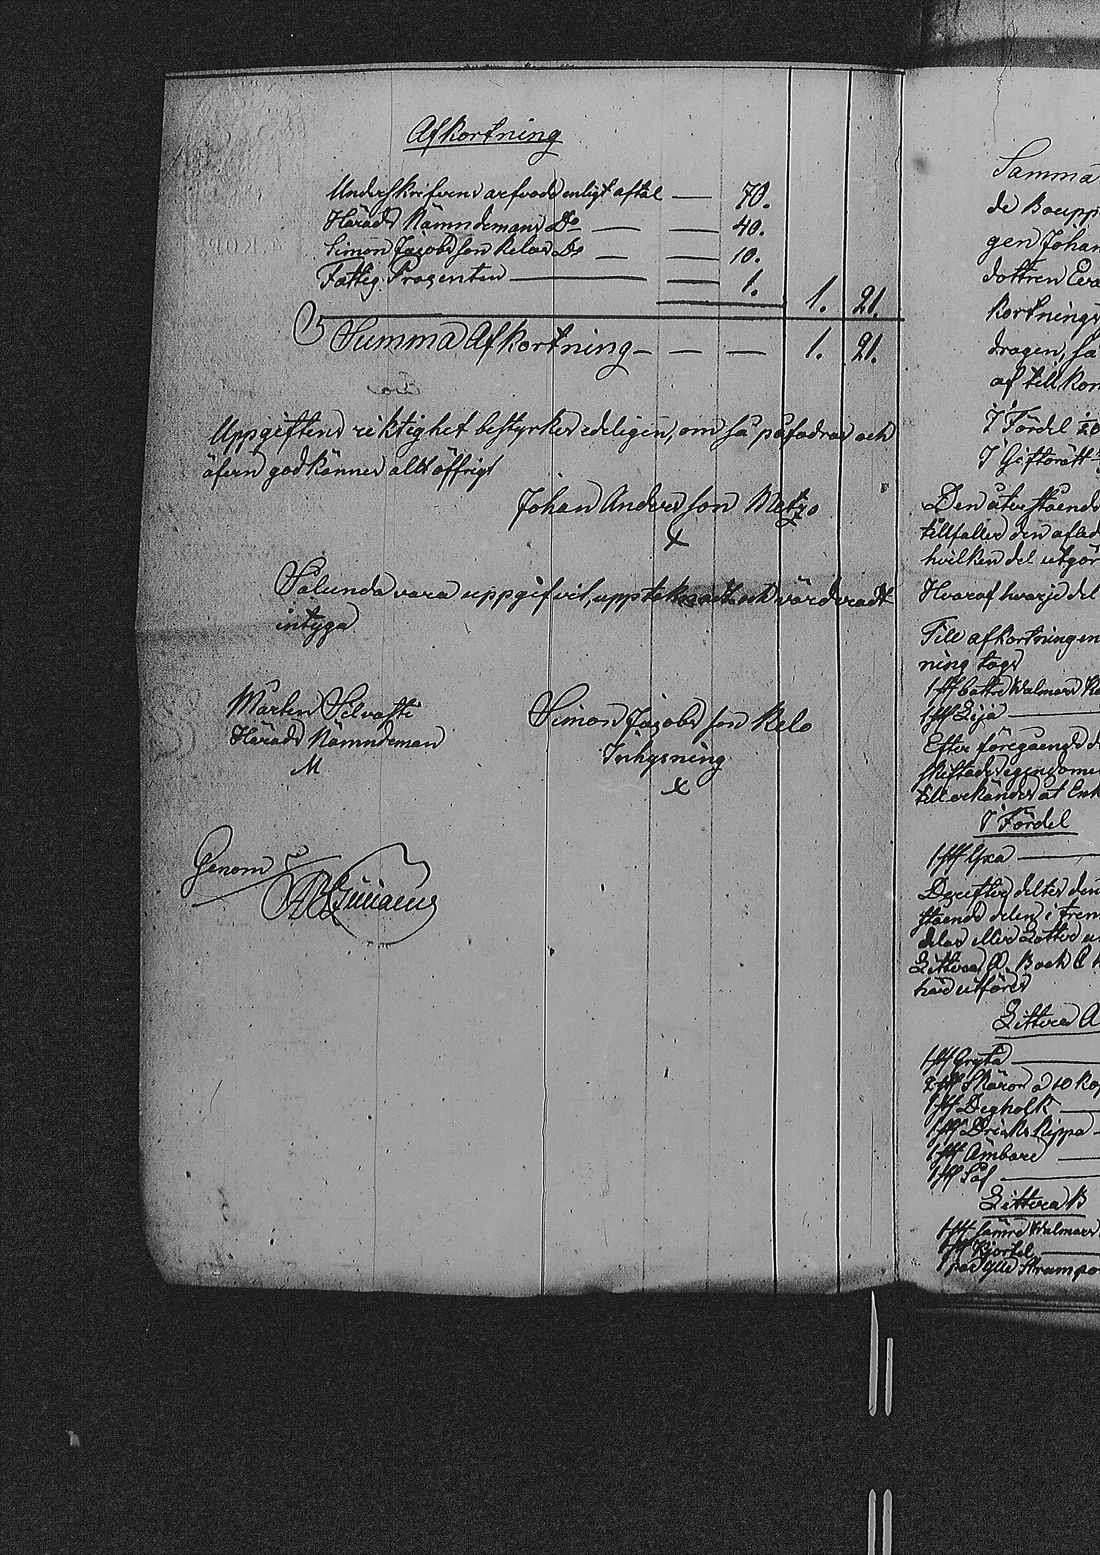 Afkortning
Underskrifvens arfvode enligt aftal — 70.
Härads Nämndemans Do — — 40.
Simon Jacobsson Kelos Do — — 10.
Fattig Procenten — — 1. 1. 21.
Summa Afkortning — — — 1. 21.
Uppgiftens riktighet bestyrkes edeligen, om så påfodras och
äfven godkännes alt öffrigt
Johan Andersson Metzo
X
Sålunda vara uppgifvit, upptecknadt och värderadt
intyga
Mårten Silvasti
Härads Nämndeman
M
Simon Jacobsson Kelo
Inhysning
X
Genom
Samma
de Boupp
gen Johan
dottren Eva
kortnings
dragen, så
af till kom
I Fördel 1/20
I Giftorätt
Den återstående
tillfaller den afled
hvilken del utgör
Hvaraf hvarje del
Till afkortningen
ning togs
1 st bättre Walmars
1 st Lija —
Efter föregaengd
skiftades egendomen
tillerkändes at Enk
I Fördel
1 st Yxa —
Derefter deltes den
stående delen i trenne
delar eller Lotter
Littera A. B och C
här utföres
Littera A
1 st Gryta —
2 st Skäror a 10 Kop
1 st Degholk —
1 st Dricks Kippa —
1 st Ämbare —
1 st Så —
Littera B
1 st sämre Walmars
1 st Kjortel —
1 par ylle Strumpor